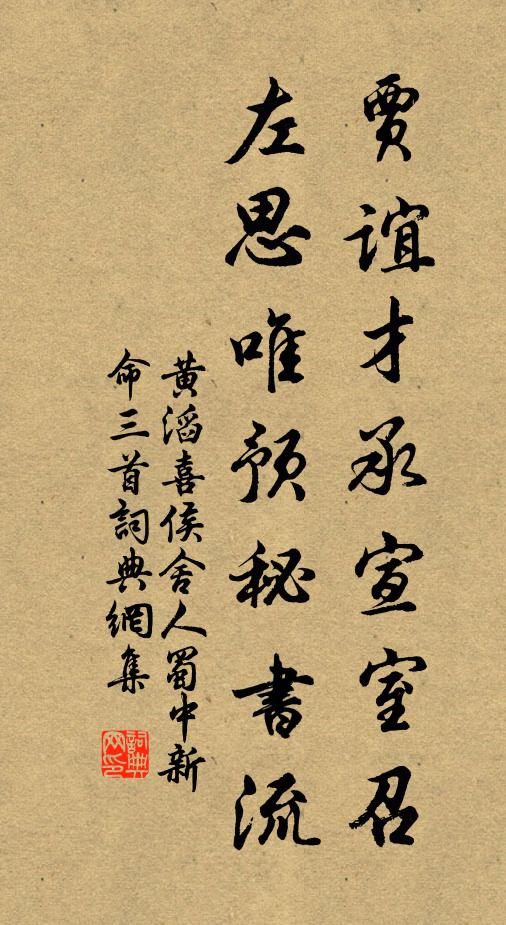 賈誼才承宣室召
左思唯預秘書流
黄滔喜侯舍人蜀中新
命三首詞典網集
詞典網印